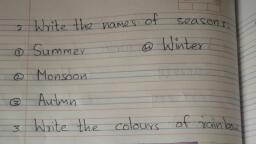 2 Write the names of seasons.
① Summer ④ Winter
② Monsoon
③ Autmn
3 Write the colours of rainbow